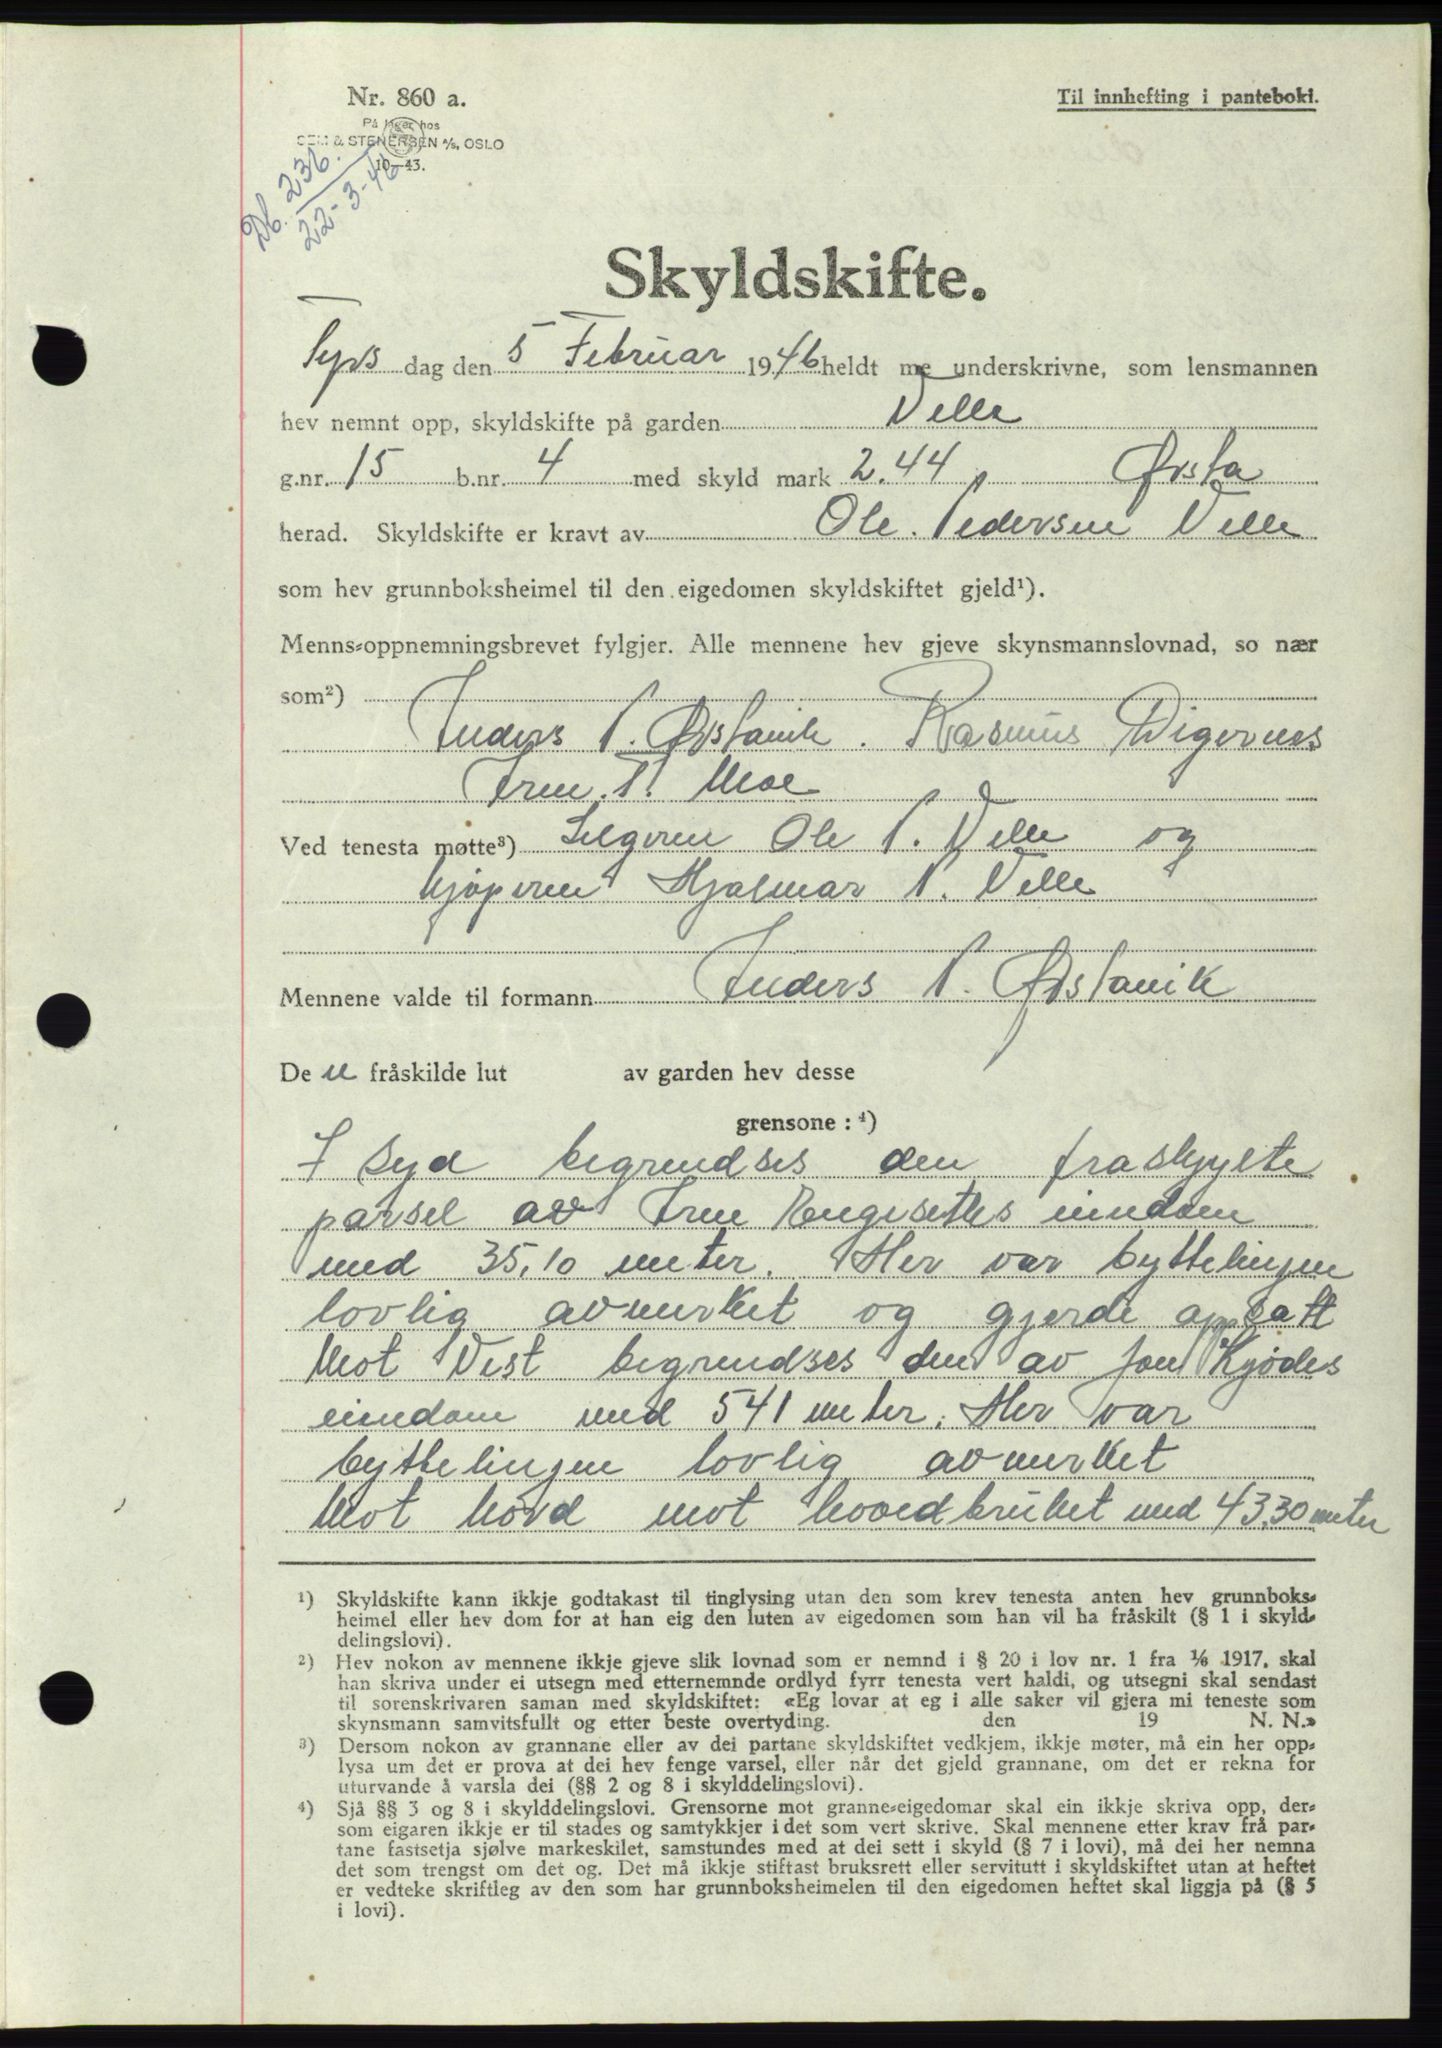 Nr. 860 a.
Til innhefting i panteboki.
På lager hos
SEM & STENERSEN A/S, OSLO
10—43.
Db. 236.
22-3-46
Skyldskifte.
Tyrs dag den 5 Februar 1946 heldt me underskrivne, som lensmannen
hev nemnt opp, skyldskifte på garden Velle
g.nr. 15 b.nr. 4 med skyld mark 2.44 Ørsta
herad. Skyldskifte er kravt av Ole. Pedersen Velle
som hev grunnboksheimel til den eigedomen skyldskiftet gjeld¹).
Menns-oppnemningsbrevet fylgjer. Alle mennene hev gjeve skynsmannslovnad, so nær
som²)
Anders P. Ørstavik. Rasmus Digernes
Iver. T. Moe
Ved tenesta møtte³) Selgeren Ole P. Velle og
kjøperen Hjalmar P. Velle
Mennene valde til formann Anders P. Ørstavik
De n fråskilde lut av garden hev desse
grensone : ⁴)
I Syd begrendses den fraskyldte
parsel av Iver Rengesethes eiendom
med 35,10 meter. Her var byttelinjen
lovlig avmerket og gjerde oppsatt
Mot Vest begrendses den av Jon Kjødes
eiendom med 541 meter. Her var
byttelinjen lovlig avmerket
Mot Nord mot hovedbruket med 43,30 meter
¹) Skyldskifte kann ikkje godtakast til tinglysing utan den som krev tenesta anten hev grunnboks-
heimel eller hev dom for at han eig den luten av eigedomen som han vil ha fråskilt (§ 1 i skyld-
delingslovi).
²) Hev nokon av mennene ikkje gjeve slik lovnad som er nemnd i § 20 i lov nr. 1 fra 1/6 1917, skal
han skriva under ei utsegn med etternemnde ordlyd fyrr tenesta vert haldi, og utsegni skal sendast
til sorenskrivaren saman med skyldskiftet: «Eg lovar at eg i alle saker vil gjera mi teneste som
skynsmann samvitsfullt og etter beste overtyding. den 19 N. N.»
³) Dersom nokon av grannane eller av dei partane skyldskiftet vedkjem, ikkje møter, må ein her opp-
lysa um det er prova at dei hev fenge varsel, eller når det gjeld grannane, om det er rekna for
uturvande å varsla dei (§§ 2 og 8 i skylddelingslovi).
⁴) Sjå §§ 3 og 8 i skylddelingslovi. Grensorne mot granne-eigedomar skal ein ikkje skriva opp, der-
som eigaren ikkje er til stades og samtykkjer i det som vert skrive. Skal mennene etter krav frå par-
tane fastsetja sjølve markeskilet, samstundes med at dei sett i skyld (§ 7 i lovi), må dei her nemna
det som trengst om det og. Det må ikkje stiftast bruksrett eller servitutt i skyldskiftet utan at heftet
er vedteke skriftleg av den som har grunnboksheimelen til den eigedomen heftet skal liggja på (§ 5
i lovi).